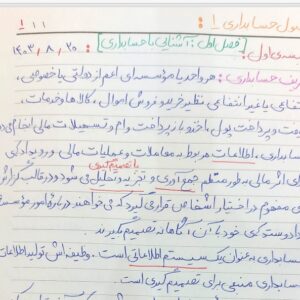 صول حسابداری ۱ : ۱ ۱ ۱
سه‌ی اول : فصل اول : آشنایی با حسابداری : ۲۰ / ۸ / ۱۴۰۳
ریف حسابداری : هر واحد یا مؤسسه‌ای اعم از دولتی یا خصوصی ،
نتفاعی یا غیر انتفاعی نظیر خرید و فروش اموال ، کالا و خدمات ،
فت و پرداخت پول ، اخذ و بازپرداخت وام و تسهیلات مالی انجام می‌د
سابداری ، اطلاعات مربوط به معاملات و عملیات مالی و رویدادی
رای اثر مالی به طور منظم جمع آوری و تجزیه و تحلیل می‌شود و در قالب گزارش
یا تصمیم گیری
ی مفهوم در اختیار اشخاص قرار می‌گیرد که می‌خواهند درباره امور مؤسسه
داد و ستد کنی خود با آن آگاهانه تصمیم بگیرند .
سابداری به عنوان یک سیستم اطلاعاتی است . وظیفه‌اش تولید اطلاعات
سابداری مبنایی برای تصمیم گیری است .